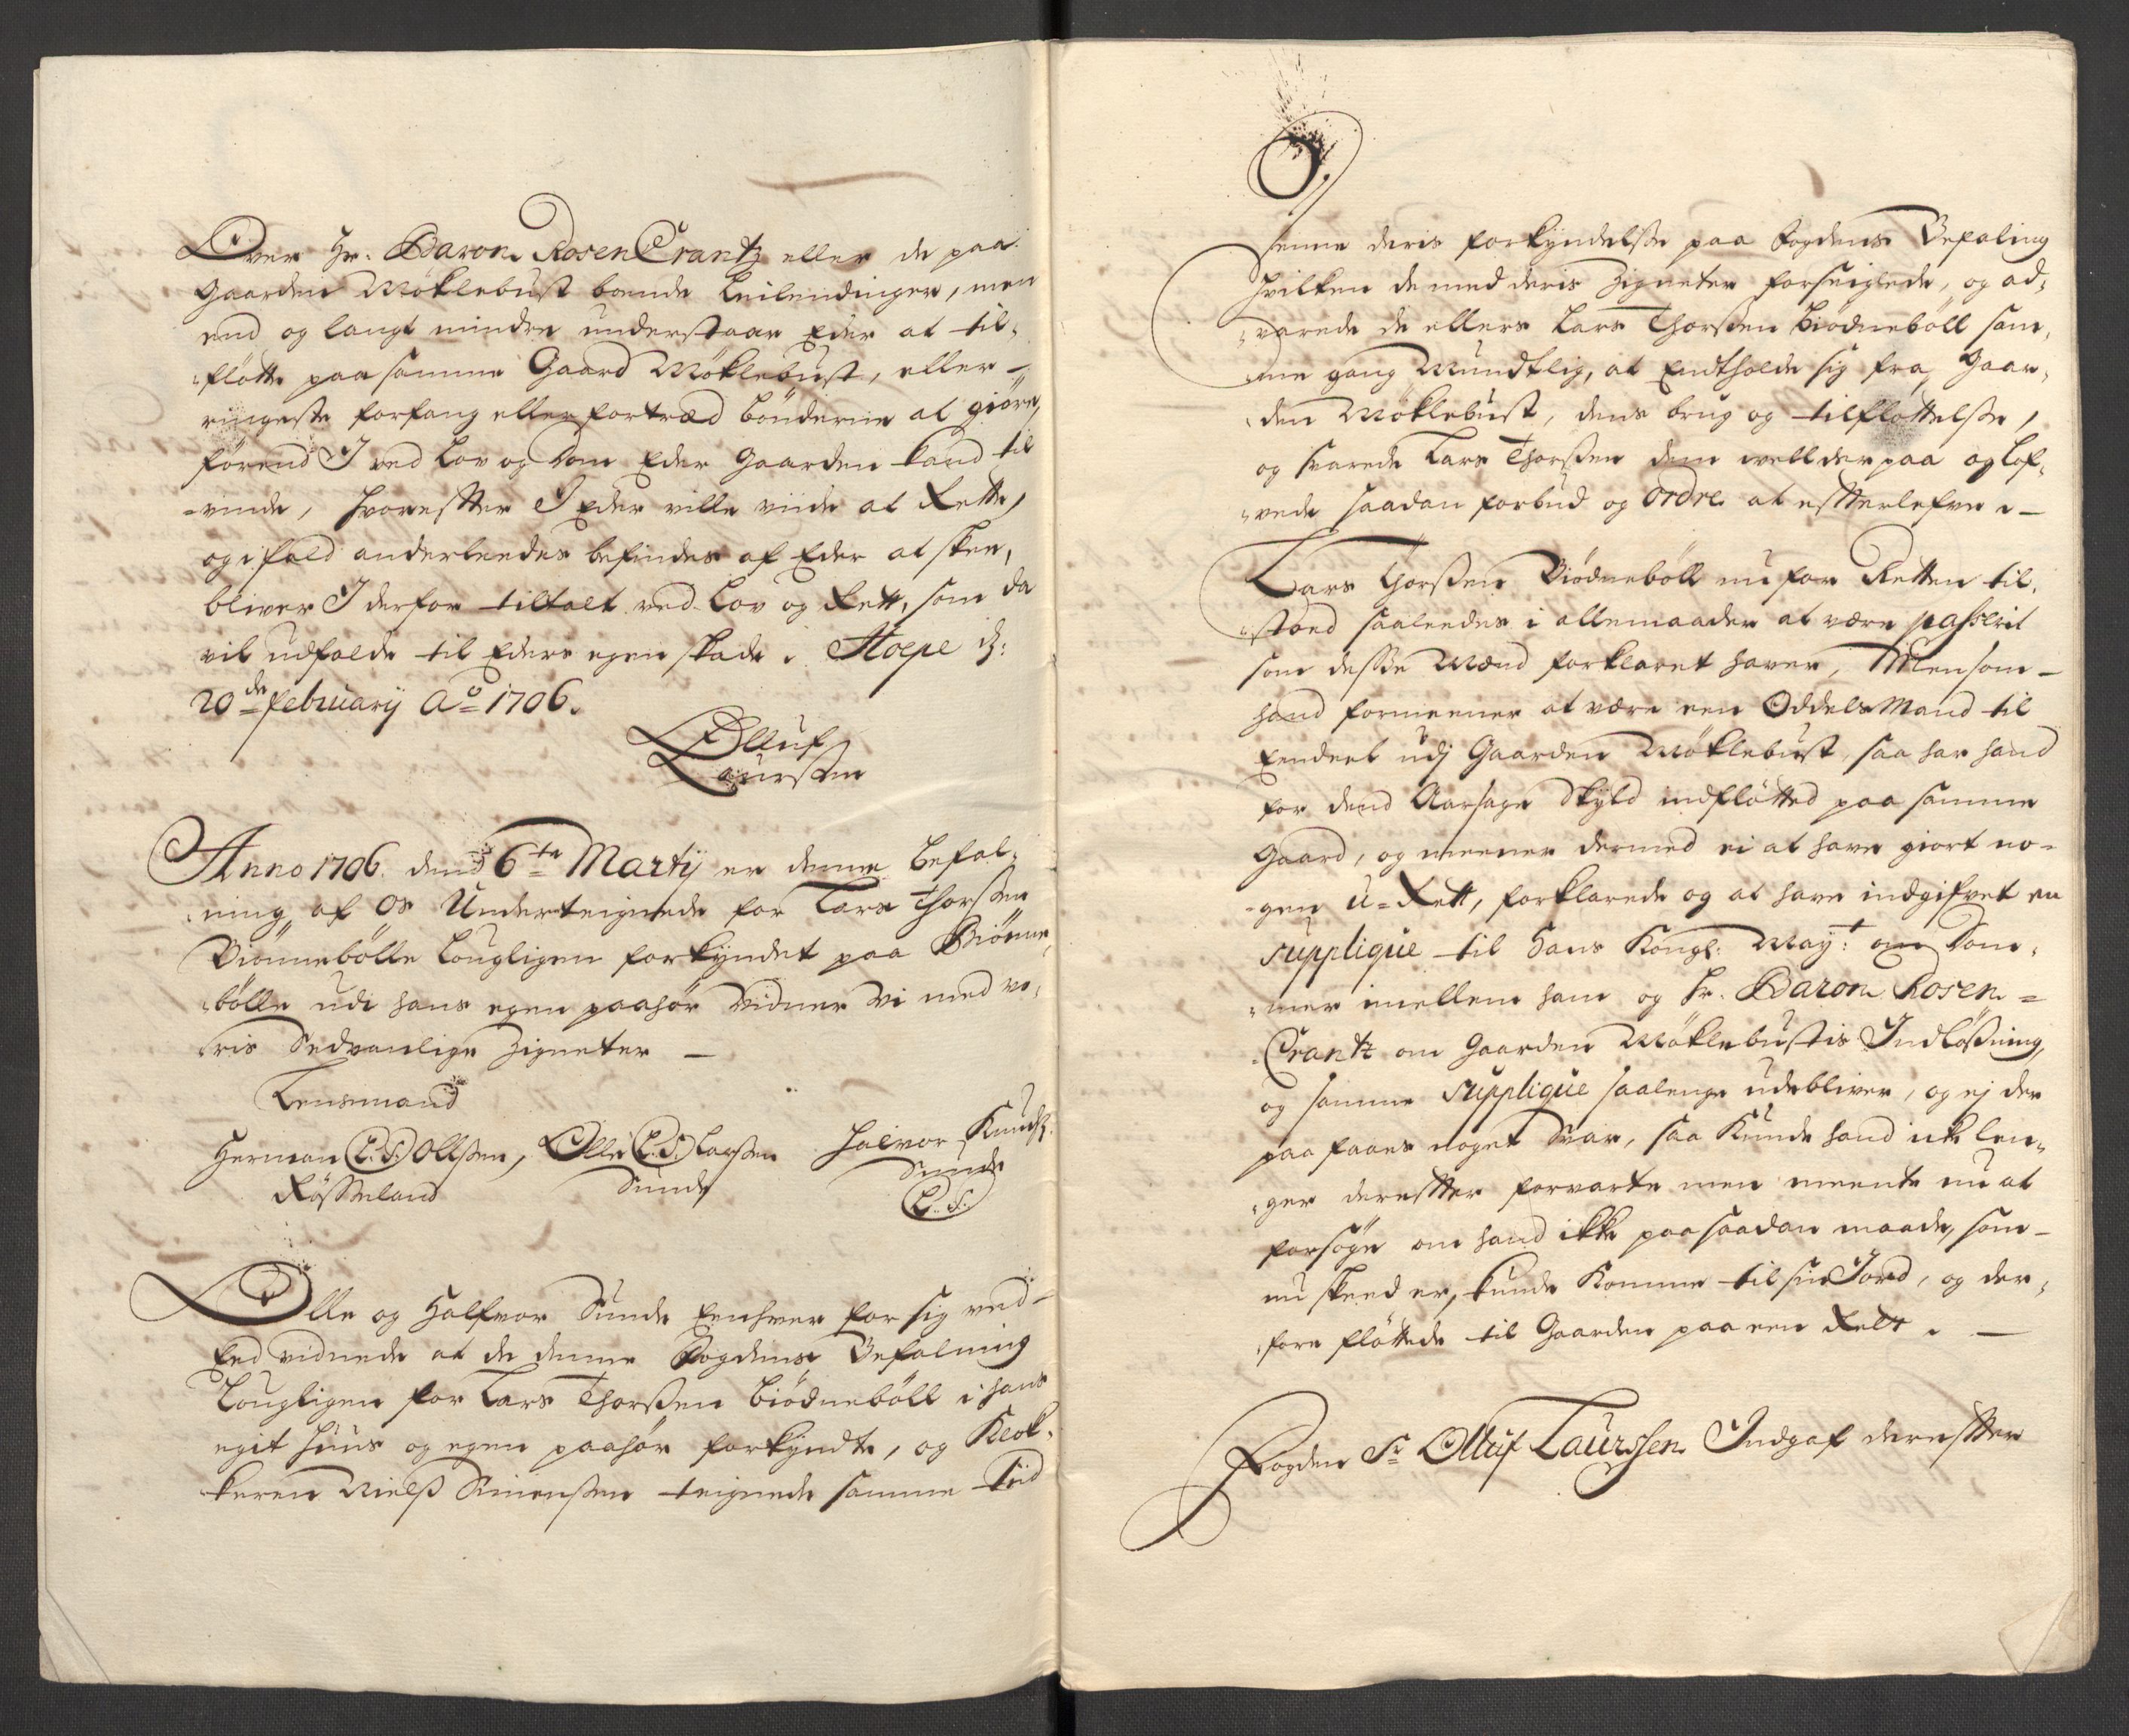 Over Hr. Baron RosenCrantz eller de paa
Gaarden Möklebust boende Leilendinger, men
end og langt mindre understaar Eder at til-
flötte paa samme Gaard Möklebust, eller -
ringeste forfang eller fortræd bönderne at giöre,
förend I ved Lov og Dom Eder Gaarden kand til
vinde, hvoreffter I Eder ville viide at Rette,
og ifald anderleedes befindes af Eder at skee,
bliver I derfor tiltalt ved Lov og Rett, som da
vil udfalde til Eders egen skade. Hoepe d:
20de february Ao 1706.
Olluf
Laurssen
Anno 1706. dend 6te Martij er denne befal-
ning af Os Underteignede for Lars Thorssen
Biönnebölle Lougligen forkyndet paa Biönne-
bölle udi hans egen paahör Vidner Vi med vo-
ris Sedvanlige Zigneter -
Lensmand
Herman L.S. Ollssen, Olle L.S. Larssen Halvor Knuds:
Rösseland Sunde Sunde
L.S.
Olle og Halfvor Sunde Eenhver for sig ved
Eed vidnede at de denne Fogdens Befalning
Lougligen for Lars Thorssen Biödneböll i hans
egit Huus og egen paahör forkyndte, og Klok-
keren Nielß Simenssen teignede samme Tiid
denne deris forkyndelsse paa Fogdens Befaling
hvilken de med deris Zigneter forseiglede, og ad-
varede de ellers Lars Thorssen Biödneböll sam-
me gang Mundtlig, at Endtholde sig fra Gaar-
den Möklebust, dens brug og tilflöttelsse,
og svarede Lars Thorssen dem vell derpaa og lof-
vede saadan forbud og ordre at effterlefve. -
Lars Thorssen Biödneböll nu for Retten til-
stoed saaleedes i allemaader at være passerit
som desse Mænd forklaret haver, Men som -
hand formeener at være een Oddels Mand til
Eendeel udj Gaarden Möklebust, saa har hand
for dend Aarsage Skyld indflötted paa samme
Gaard, og meener dermed ei at have giort no-
gen U-Rett, forklarede og at have indgifvet en
supplique til Hans Kongl: Mayt: om Dom-
mer imellem ham og Hr. Baron Rosen-
Crantz om Gaarden Möklebustis Indlößning,
og samme supplique saalenge udebliver, og ej der
paa faaes noget Svar, saa Kunde hand ick len-
ger dereffter forvarte men meente nu at
forsöge om hand ikke paa saadan maade, som -
nu skeed er, kunde Komme til sin Jord, og der-
fore flöttede til Gaarden paa een Rett. -
Fogden Sr Olluf Laurssen Indgaf dereffter